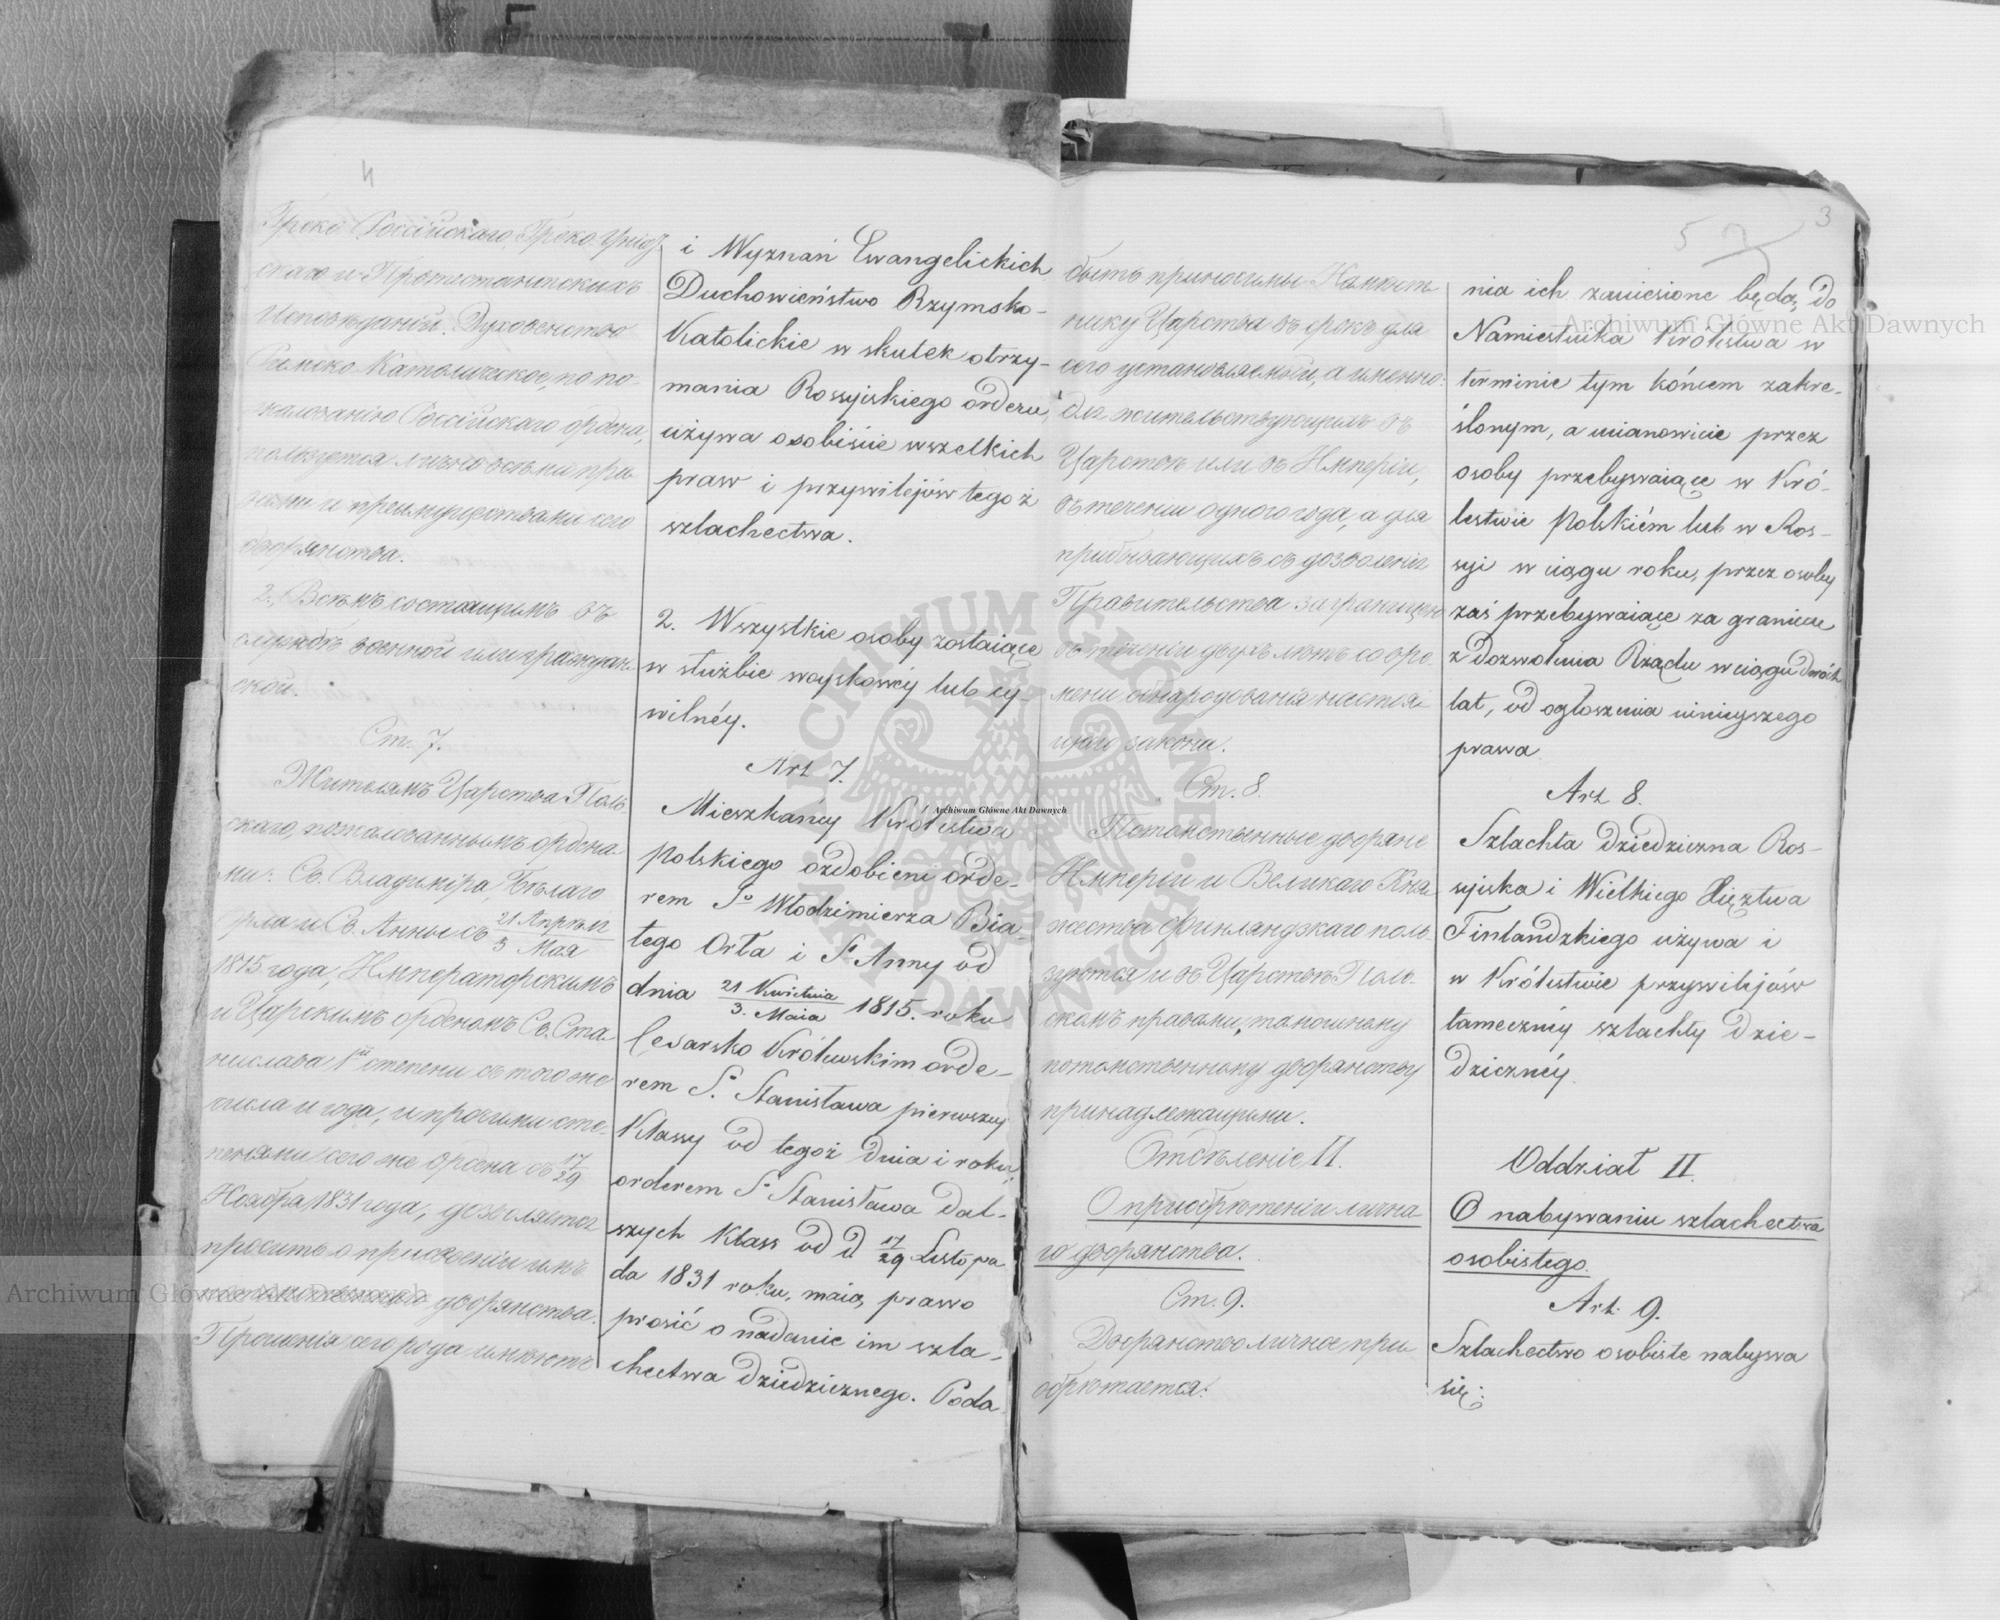 4
Греко Россійскаго, Греко Уніат-
скаго и Протестантскихъ
Исповѣданій. Духовенство
Римско Католическое, по по-
жалованію Россійскаго ордена,
пользуется лично всѣми пра-
вами и преимуществами сего
дворянства.
2., Всѣмъ состоящимъ въ
службѣ военной или граждан-
ской.
Ст. 7.
Жителямъ Царства Поль-
скаго, пожалованнымъ ордена-
ми: Св. Владиміра, Бѣлаго
Орла и Св. Анны съ 21 Апрѣля / 3 Мая
1815 года, Императорскимъ
и Царскимъ орденомъ Св. Ста-
нислава 1й степени съ того же
числа и года, и прочими сте-
пенями сего же ордена съ 17/29
Ноября 1831 года, дозволяется
просить о присвоеніи имъ
потомственнаго дворянства.
Прошенія сего рода имѣютъ
i Wyznań Ewangelickich
Duchowieństwo Rzymsko-
Katolickie w skutek otrzy-
mania Rossyjskiego orderu,
używa osobiście wszelkich
praw i przywilejów tegoż
szlachectwa.
2. Wszystkie osoby zostaiące
w służbie woyskowéy lub cy-
wilnéy.
Art 7.
Mieszkańcy Królestwa
Polskiego ozdobieni orde-
rem So Włodzimierza Bia-
łego Orła i So Anny od
dnia 21 Kwietnia / 3. Maia 1815. roku
Cesarsko Królewskim orde-
rem So Stanisława pierwszey
Klassy od tegoż dnia i roku,
orderem So Stanisława dal-
szych Klass od d 17/29 Listopa
da 1831 roku, maią prawo
prosić o nadanie im szla-
chectwa dziedzicznego. Poda
5
3
быть приносимы Намѣст-
нику Царства въ срокъ для
сего установляемый, а именно:
для жительствующихъ въ
Царствѣ или въ Имперіи,
въ теченіи одного года, а для
прибывающихъ съ дозволенія
Правительства заграницею
въ теченіи двухъ лѣтъ со вре-
мени обнародованія настоя-
щаго закона.
Ст. 8.
Потомственные дворяне
Имперіи и Великаго Кня-
жества Финляндскаго поль-
зуются и въ Царствѣ Поль-
скомъ правами, тамошнему
потомственному дворянству
принадлежащими.
Отдѣленіе II.
О приобрѣтеніи лична
го дворянства.
Ст. 9.
Дворянство личное прі-
обрѣтается:
nia ich zaniesione będą, do
Namiestnika Królestwa w
terminie tym końcem zakre-
ślonym, a mianowicie przez
osoby przebywaiące w Kró-
lestwie Polskiém lub w Ros-
syi w ciągu roku, przez osoby
zaś przebywaiące za granicą
z dozwolenia Rządu w ciągu dwóch
lat, od ogłoszenia ninieyszego
prawa
Art 8.
Szlachta dziedziczna Ros-
syjska i Wielkiego Xięztwa
Finlandzkiego używa i
w Królestwie przywilejów
tameczney szlachty dzie-
dzicznéy.
Oddział II.
O nabywaniu szlachectwa
osobistego.
Art. 9.
Szlachectwo osobiste nabywa
się:
Archiwum Główne Akt Dawnych
Archiwum Główne Akt Dawnych
Archiwum Główne Akt Dawnych
ARCHIWUM GŁÓWNE AKT DAWNYCH